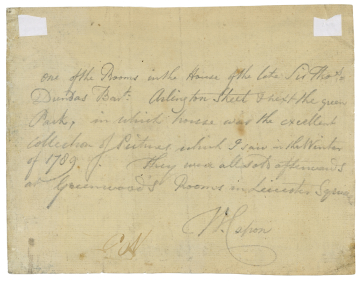 one of the Rooms in the House of the late Sir Thos
Dundas Bart. Arlington Street & next the green
Park, in which house was the excellent
Collection of Pictures which I saw in the Winter
of 1789. They were all sold afterwards
at Greenwood's Rooms in Leicester Square
Wm. Capon